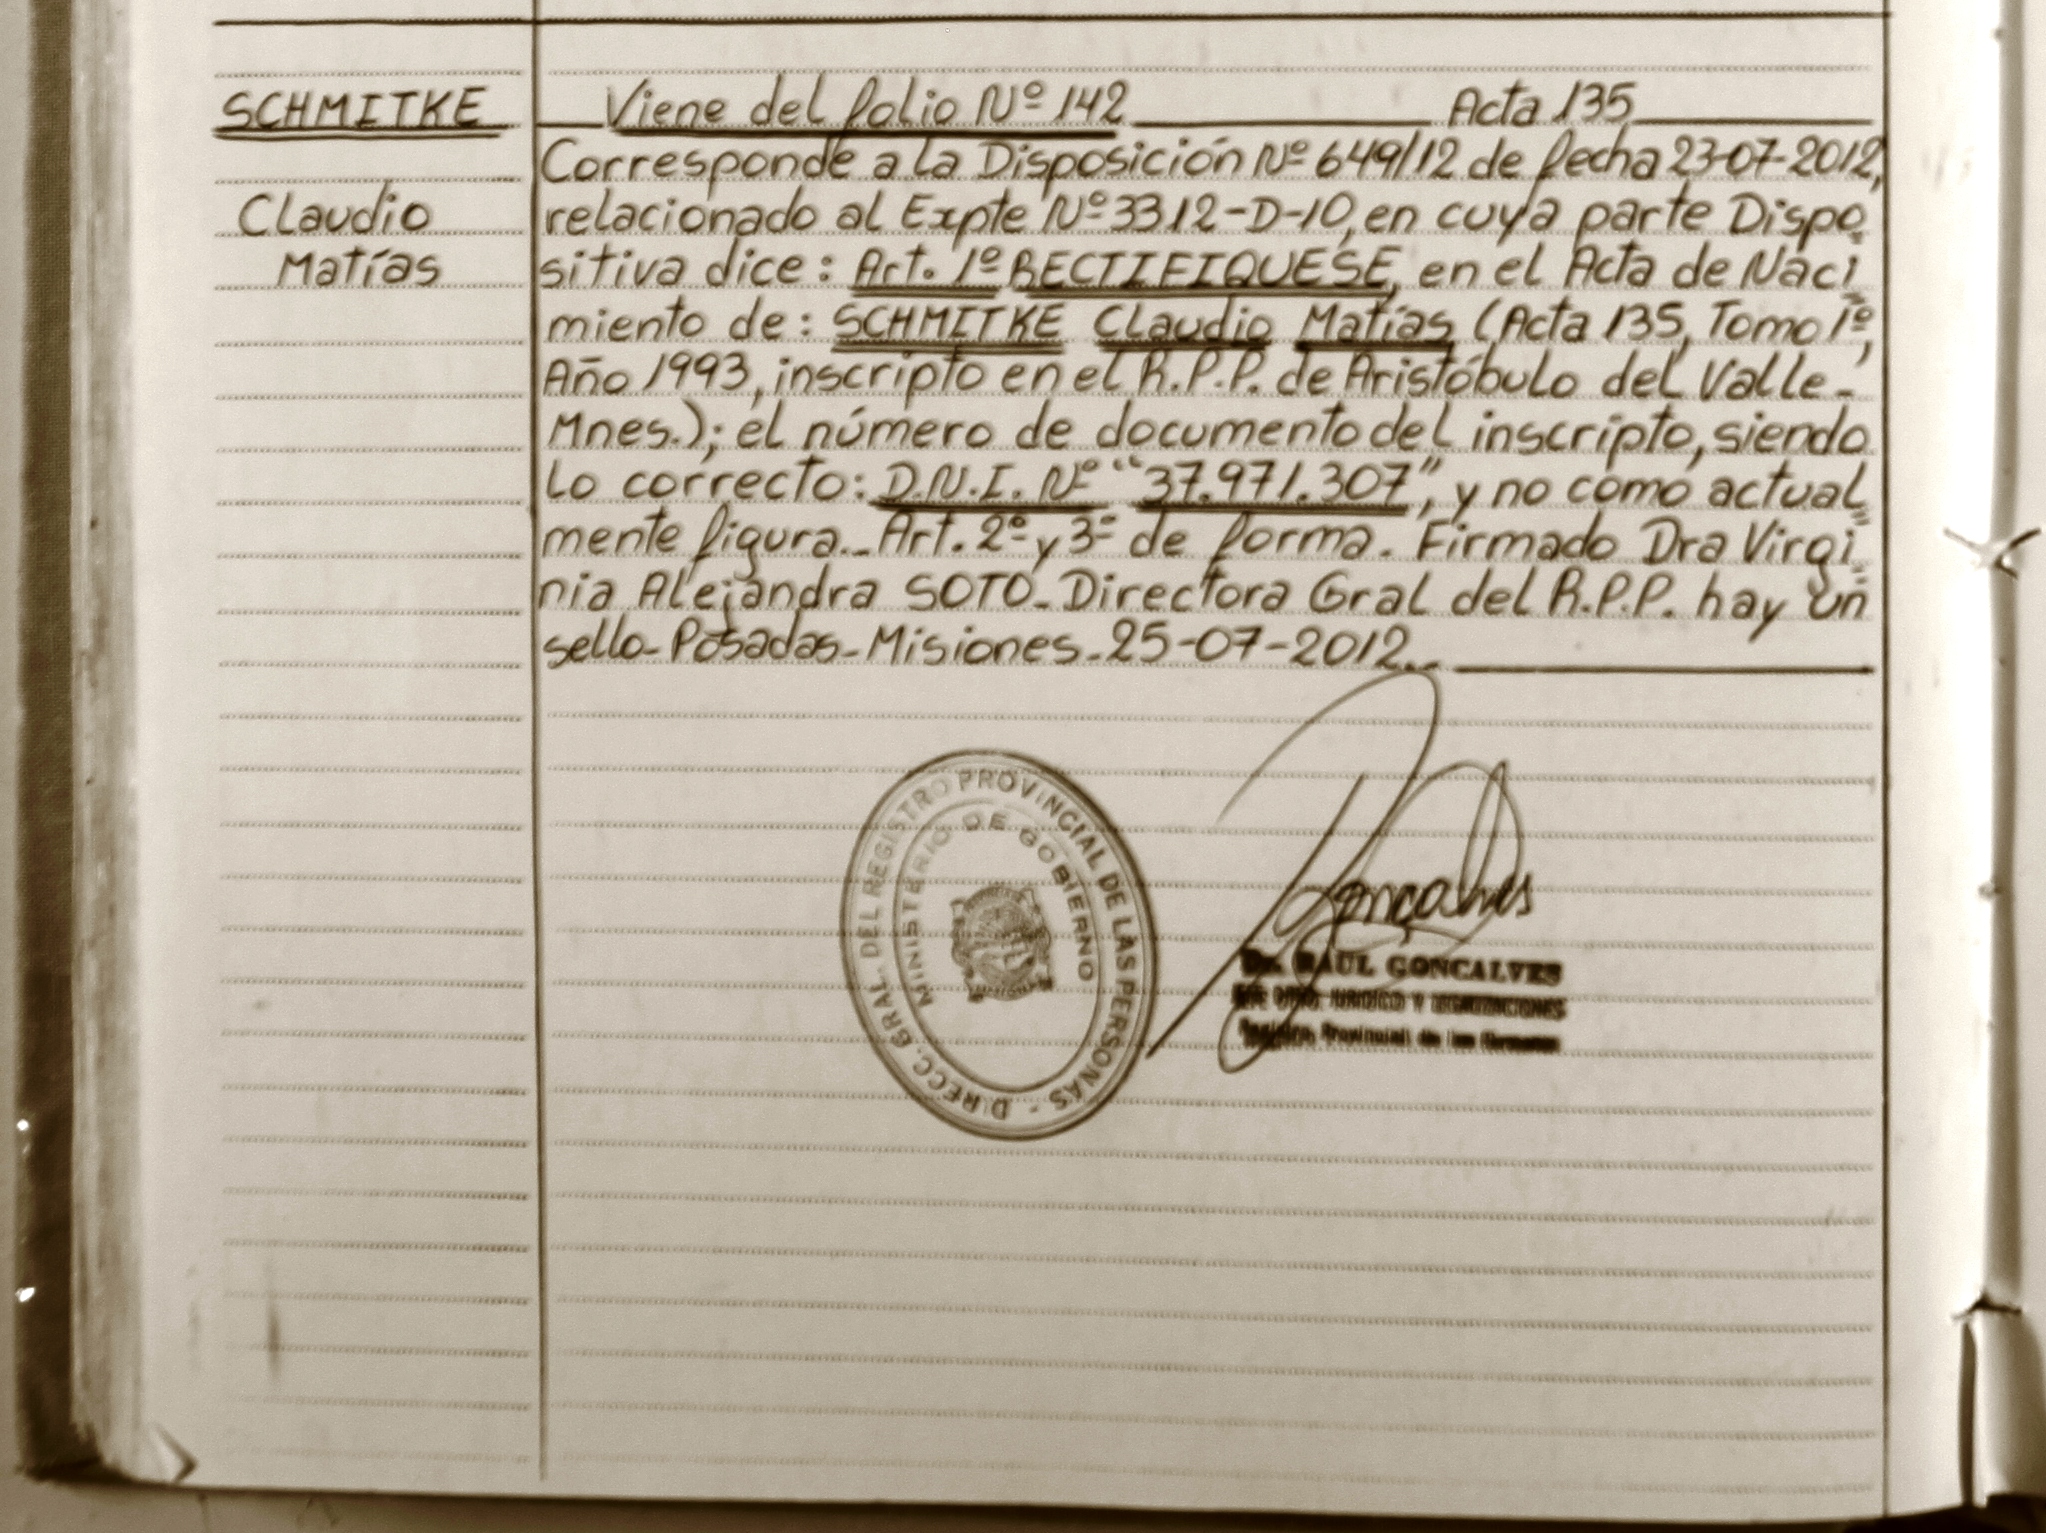 SCHMITKE
Claudio
Matías
Viene del folio Nº 142 Acta 135
Corresponde a la Disposición Nº 649/12 de fecha 23-07-2012,
relacionado al Expte Nº 3312-D-10, en cuya parte Dispo
sitiva dice: Art. 1º RECTIFIQUESE, en el Acta de Naci
miento de: SCHMITKE Claudio Matías (Acta 135, Tomo 1º,
Año 1993, inscripto en el R.P.P. de Aristóbulo del Valle-
Mnes.); el número de documento del inscripto, siendo
lo correcto: D.N.I. Nº "37.971.307", y no como actual
mente figura.- Art. 2º y 3º de forma. Firmado Dra Virgi
nia Alejandra SOTO-Directora Gral del R.P.P. hay un
sello-Posadas-Misiones-25-07-2012.-
DIRECC. GRAL. DEL REGISTRO PROVINCIAL DE LAS PERSONAS -
MINISTERIO DE GOBIERNO
Goncalves
Dr. RAUL GONCALVES
JURIDICO Y
Registro Provincial de las Personas